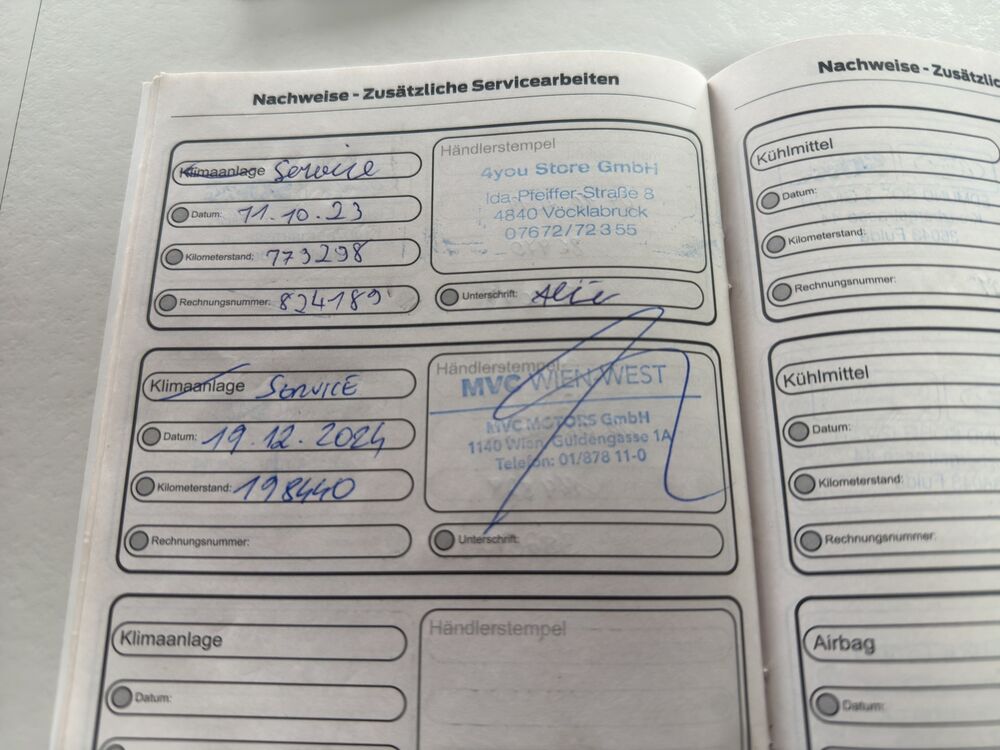 Nachweise - Zusätzliche Servicearbeiten
Klimaanlage Service
Datum: 11.10.23
Kilometerstand: 173298
Rechnungsnummer: 824189
Händlerstempel
4you Store GmbH
Ida-Pfeiffer-Straße 8
4840 Vöcklabruck
07672/72355
Unterschrift:
Klimaanlage SERVICE
Datum: 19.12.2024
Kilometerstand: 198440
Rechnungsnummer:
Händlerstempel
MVC WIEN WEST
MVC MOTORS GmbH
1140 Wien, Guldengasse 1A
Telefon: 01/878 11-0
Unterschrift:
Klimaanlage
Datum:
Händlerstempel
Nachweise - Zusätzlic
Kühlmittel
Datum:
Kilometerstand:
Rechnungsnummer:
Kühlmittel
Datum:
Kilometerstand:
Rechnungsnummer:
Airbag
Datum: